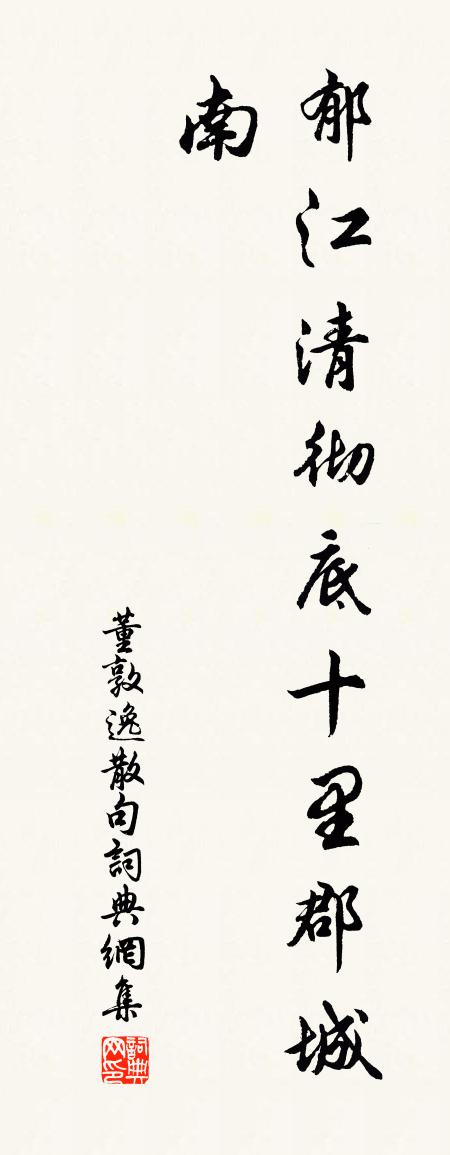 郁江清彻底十里郡城
南
董敦逸散句詞典網集
詞典
网印